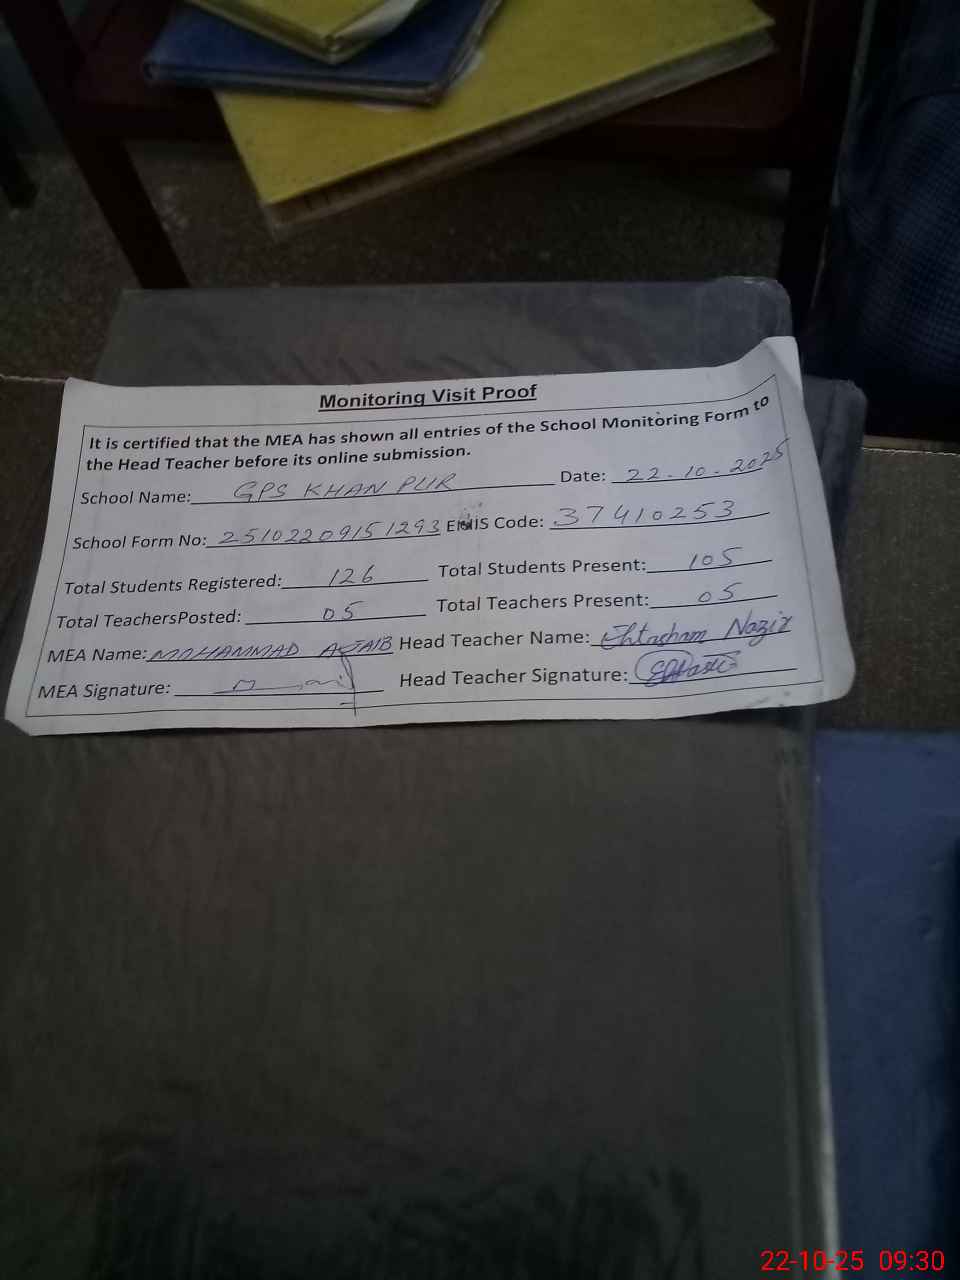 Monitoring Visit Proof
It is certified that the MEA has shown all entries of the School Monitoring Form to
the Head Teacher before its online submission.
School Name: GPS KHAN PUR Date: 22-10-2025
School Form No: 25102209151293 EMIS Code: 37410253
Total Students Registered: 126 Total Students Present: 105
Total TeachersPosted: 05 Total Teachers Present: 05
MEA Name: MOHAMMAD AJAIB Head Teacher Name: Ehtasham Nazir
MEA Signature: Head Teacher Signature:
22-10-25 09:30